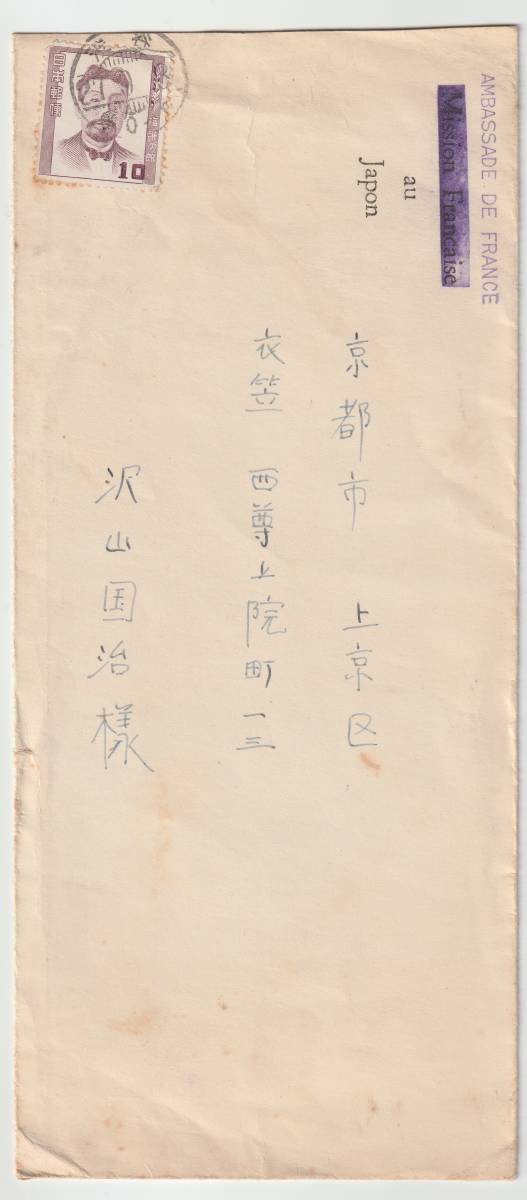 AMBASSADE DE FRANCE
Mission Française
au
Japon
京都市 上京区
衣笠 西尊上院町 一三
沢山国治様
日本郵便
10